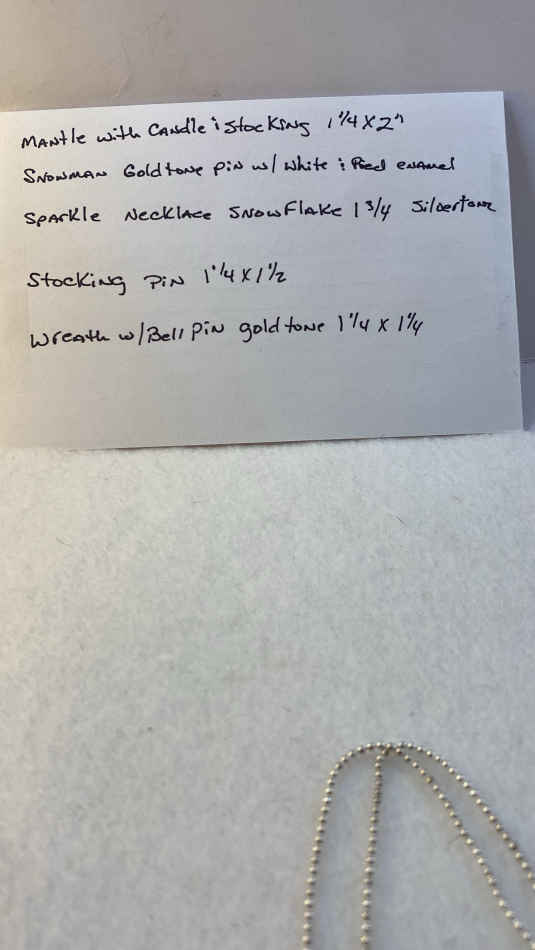 Mantle with Candle & Stocking 1 1/4 X 2"
Snowman Goldtone Pin w/ White & Red enamel
Sparkle Necklace Snowflake 1 3/4 Silvertone
Stocking Pin 1 1/4 X 1 1/2
Wreath w/Bell Pin gold tone 1 1/4 X 1 1/4